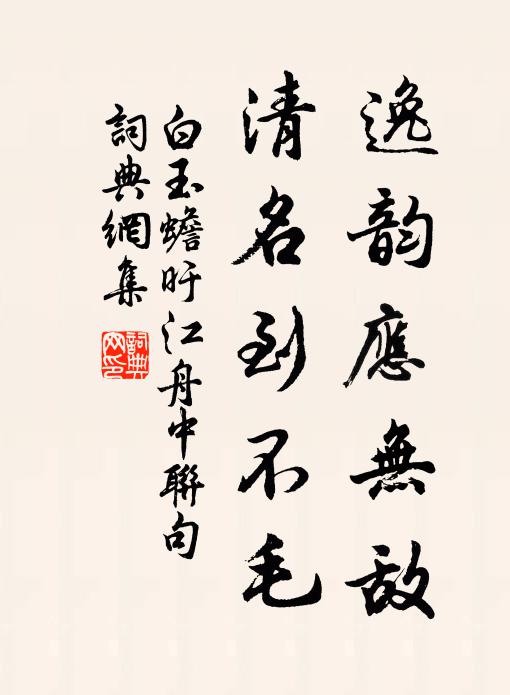 逸韵應無敌
清名到不毛
白玉蟾旴江舟中聯句
詞典網集
詞典
网印